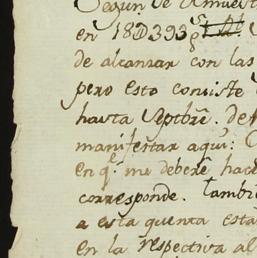 Segun se
en 18D393
de alcanzar con las
pero esto consiste
hasta Septbrē. de
manifestar aqui:
en qᵉ. me deberē hace
corresponde. tambie
a esta quenta esta
en la respectiva al